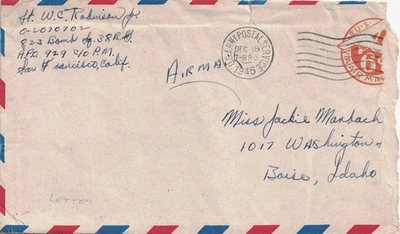 Lt. W.C. Robinson Jr.
O-2070702
823 Bomb Sq. 38 B.G.
APO 929 c/o P.M.
San Francisco, Calif.
U.S. ARMY POSTAL SERVICE
DEC 18
1945
AIRMAIL
U.S.
6
Miss Jackie Marbach
1017 Washington
Boise, Idaho
LETTER